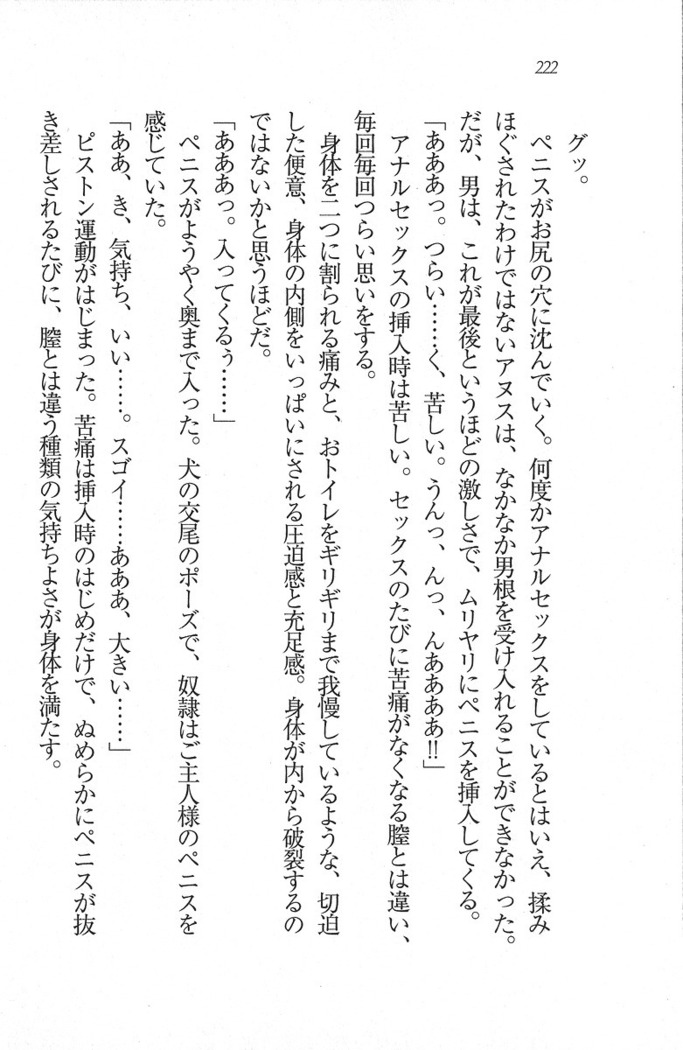 222
グッ。
ペニスがお尻の穴に沈んでいく。何度かアナルセックスをしているとはいえ、揉み
ほぐされたわけではないアヌスは、なかなか男根を受け入れることができなかった。
だが、男は、これが最後というほどの激しさで、ムリヤリにペニスを挿入してくる。
「あああっ。つらい……く、苦しい。うんっ、んっ、んああああ!!」
アナルセックスの挿入時は苦しい。セックスのたびに苦痛がなくなる膣とは違い、
毎回毎回つらい思いをする。
身体を二つに割られる痛みと、おトイレをギリギリまで我慢しているような、切迫
した便意、身体の内側をいっぱいにされる圧迫感と充足感。身体が内から破裂するの
ではないかと思うほどだ。
「あああっ。入ってくるぅ……」
ペニスがようやく奥まで入った。犬の交尾のポーズで、奴隷はご主人様のペニスを
感じていた。
「ああ、き、気持ち、いい……。スゴイ……あああ、大きい……」
ピストン運動がはじまった。苦痛は挿入時のはじめだけで、ぬめらかにペニスが抜
き差しされるたびに、膣とは違う種類の気持ちよさが身体を満たす。